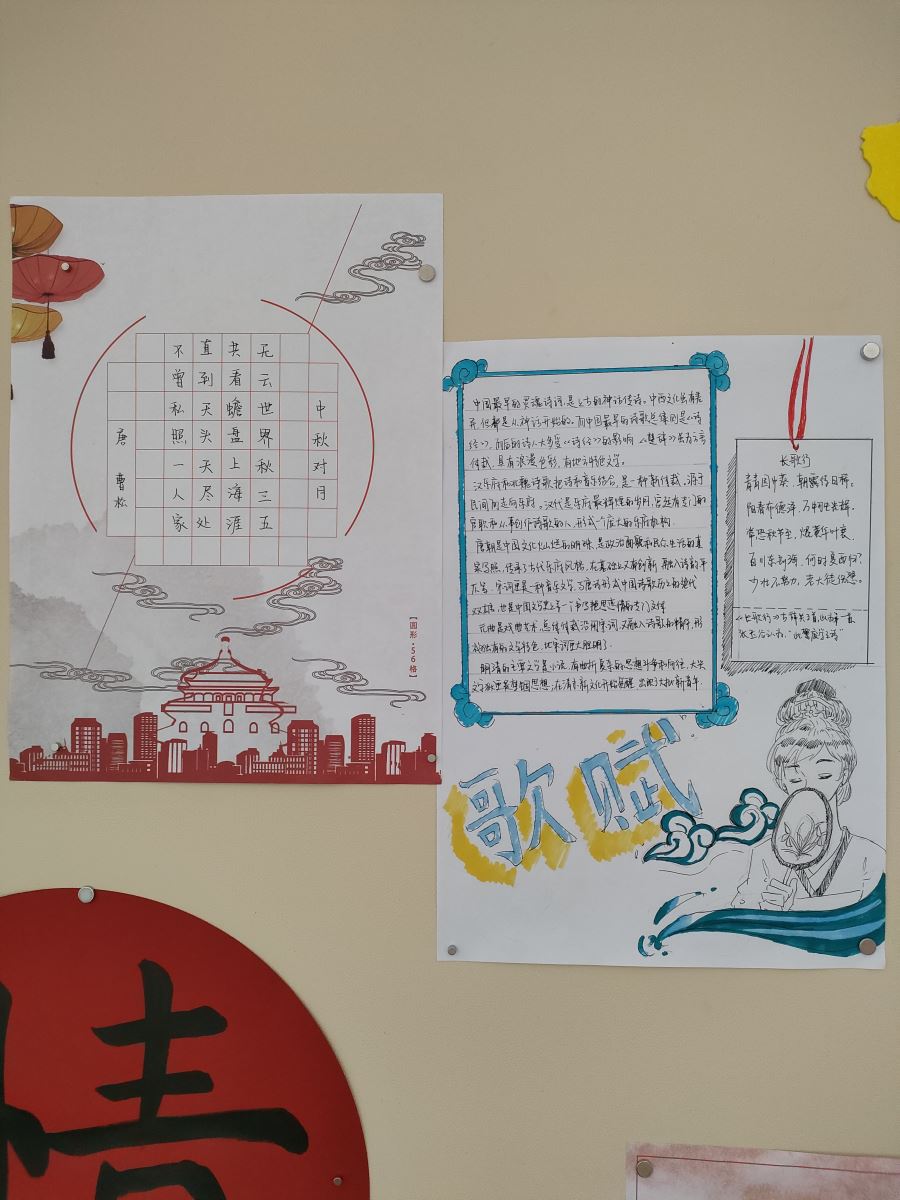 中秋对月
无云世界秋三五
共看蟾盘上海涯
直到天头天尽处
不曾私照一人家
唐 曹松
【圆形·56格】
中国最早的灵魂诗词,是上古的神话传诗。中西文化虽有差
异,但都是从神话开始的。而中国最早的诗歌总集则是《诗
经》,而后的诗人大多受《诗经》的影响《楚辞》
体裁,具有浪漫色彩,有地方特色文学。
汉乐府
诗歌把诗和音乐结合,是一种新体裁,源于
民间而走向乐府。汉代是乐府最辉煌的岁月,宫廷有专门的
官职和从事创作诗歌的人,形成一个庞大的乐府机构。
唐朝是中国文化
的明珠,是政治面貌和民众生活的真
实写照,传承了古代乐府风格,在基础上又有创新,融入诗韵平
宋词更是一种音乐文学,与唐诗形成中国诗歌历史的绝代
双娇,也是中国文学史上予一个书写艳思恋情的专门文体
元曲是戏曲艺术,总体体裁沿用宋词,又融入诗歌的精华,形
成独有的文学特色,比宋词更大胆明了.
明清的主要文学是小说,有曲折复杂的思想斗争和向往,大头
思想,在清末新文化开始苏醒,出现了大批新青年.
长歌行
青青园中葵,朝露待日晞。
阳春布德泽,万物生光辉.
常恐秋节至,焜黄华叶衰.
百川东到海,何时复西归?
少壮不努力,老大徒伤悲.
《长歌行》
歌赋
情